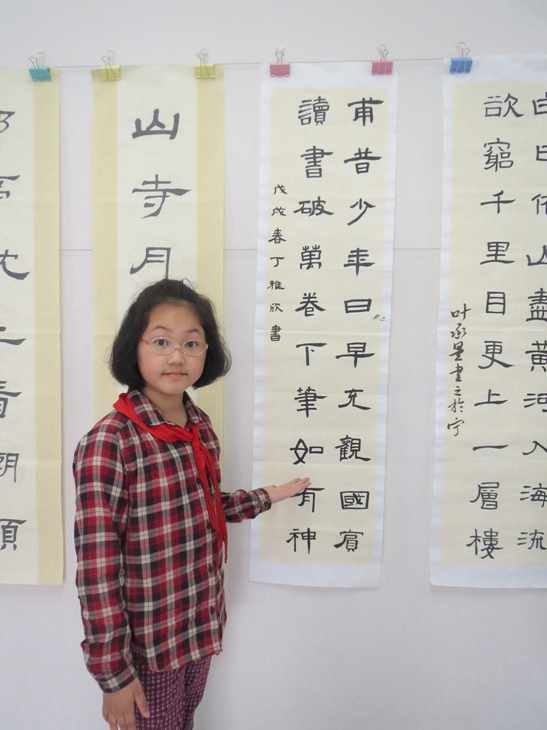 白日依山盡黄河入海流
欲窮千里目更上一層樓
甫昔少年日早充觀國賓
讀書破萬卷下筆如有神
戊戌春丁雅欣書
山寺月
亭枕上看潮頭